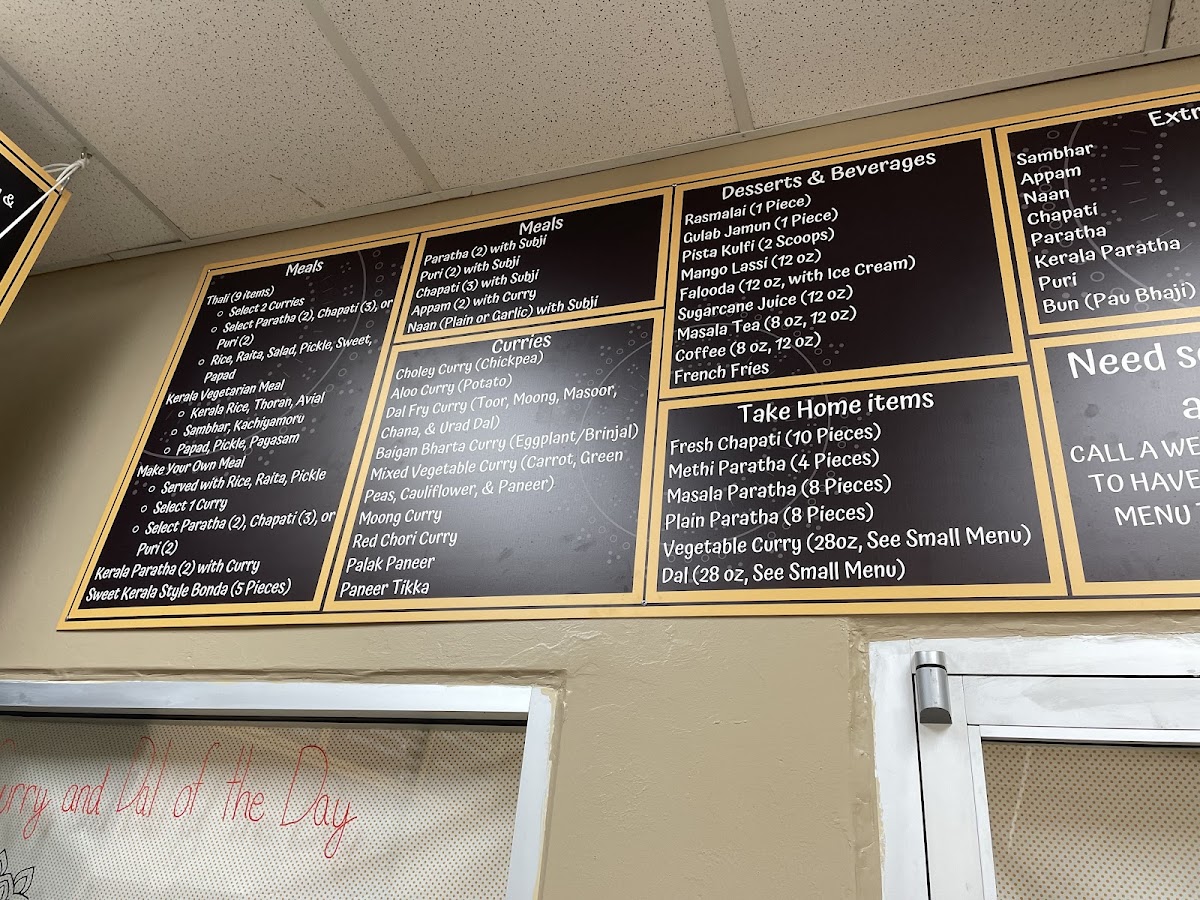 &
Meals
Thali (9 items)
Select 2 Curries
Select Paratha (2), Chapati (3), or
Puri (2)
Rice, Raita, Salad, Pickle, Sweet,
Papad
Kerala Vegetarian Meal
Kerala Rice, Thoran, Avial
Sambhar, Kachiyamoru
Papad, Pickle, Payasam
Make Your Own Meal
Served with Rice, Raita, Pickle
Select 1 Curry
Select Paratha (2), Chapati (3), or
Puri (2)
Kerala Paratha (2) with Curry
Sweet Kerala Style Bonda (5 Pieces)
Meals
Paratha (2) with Subji
Puri (2) with Subji
Chapati (3) with Subji
Appam (2) with Curry
Naan (Plain or Garlic) with Subji
Curries
Choley Curry (Chickpea)
Aloo Curry (Potato)
Dal Fry Curry (Toor, Moong, Masoor,
Chana, & Urad Dal)
Baigan Bharta Curry (Eggplant/Brinjal)
Mixed Vegetable Curry (Carrot, Green
Peas, Cauliflower, & Paneer)
Moong Curry
Red Chori Curry
Palak Paneer
Paneer Tikka
Desserts & Beverages
Rasmalai (1 Piece)
Gulab Jamun (1 Piece)
Pista Kulfi (2 Scoops)
Mango Lassi (12 oz)
Falooda (12 oz, with Ice Cream)
Sugarcane Juice (12 oz)
Masala Tea (8 oz, 12 oz)
Coffee (8 oz, 12 oz)
French Fries
Take Home items
Fresh Chapati (10 Pieces)
Methi Paratha (4 Pieces)
Masala Paratha (8 Pieces)
Plain Paratha (8 Pieces)
Vegetable Curry (28oz, See Small Menu)
Dal (28 oz, See Small Menu)
Extr
Sambhar
Appam
Naan
Chapati
Paratha
Kerala Paratha
Puri
Bun (Pau Bhaji)
Need s
a
CALL A WE
TO HAVE
MENU
urry and Dal of the Day